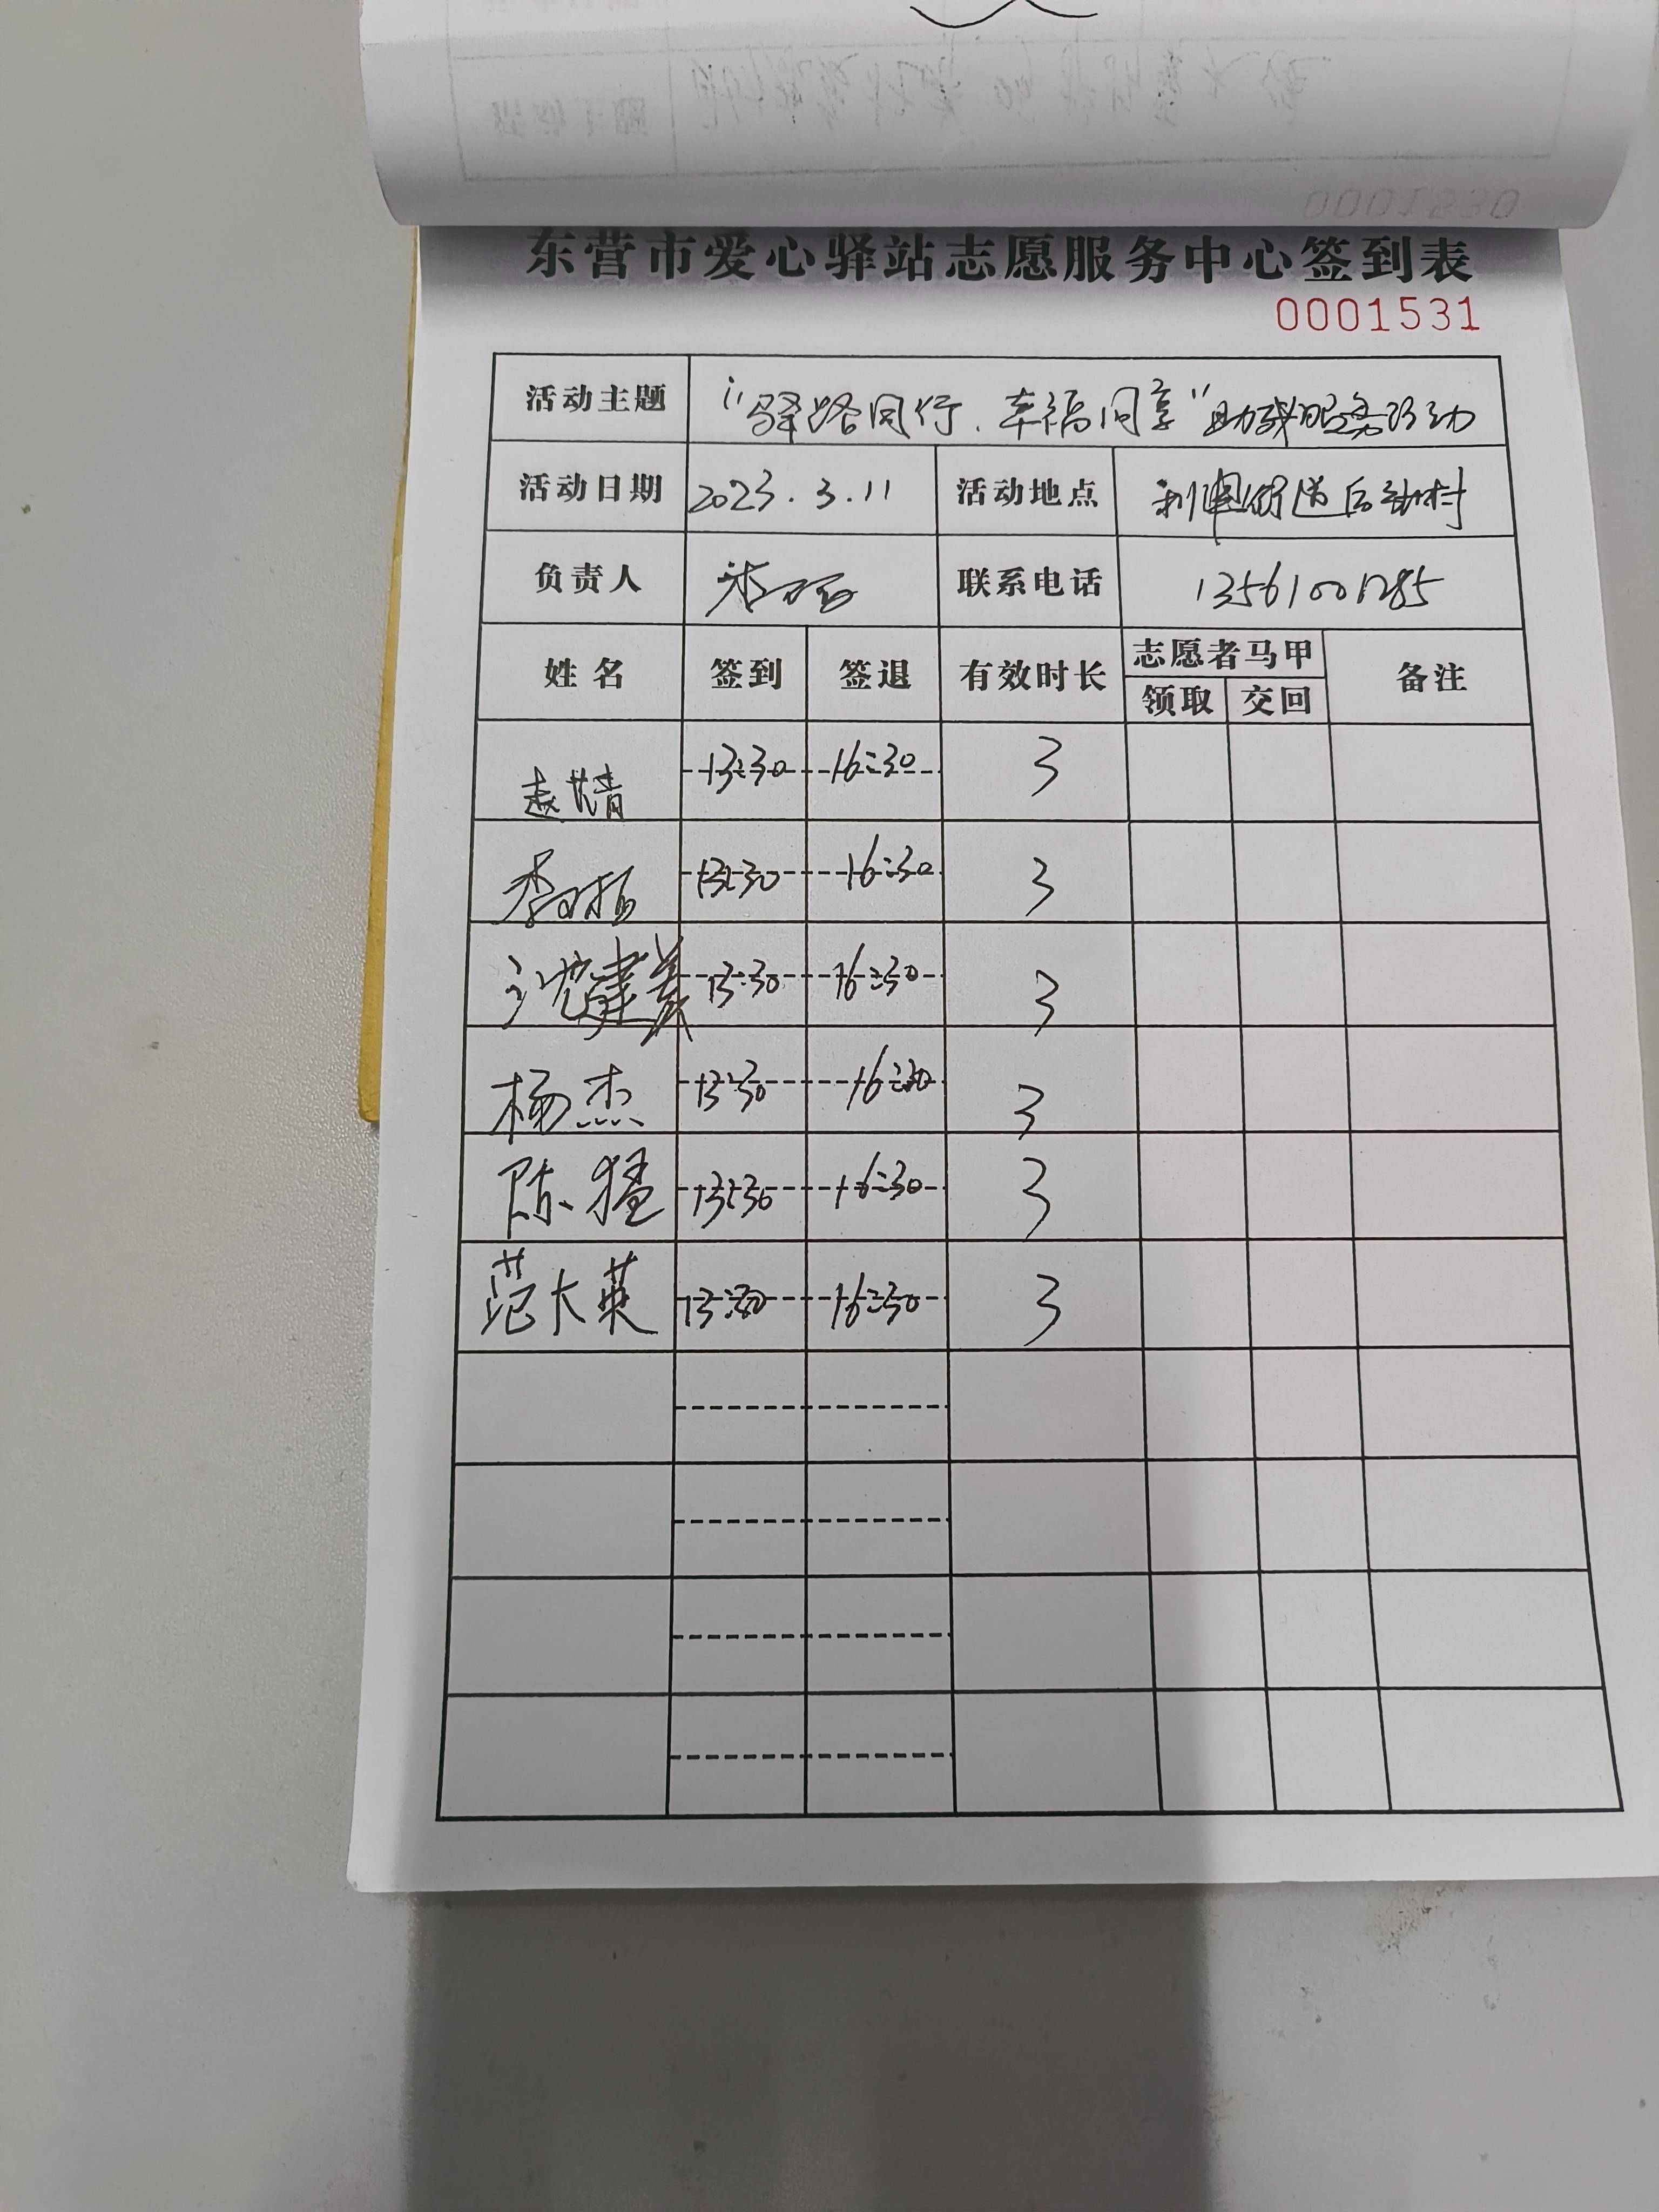 东营市爱心驿站志愿服务中心签到表
0001531
活动主题 “驿路同行、幸福同享”助残服务活动
活动日期 2023.3.11 活动地点 利津街道后刘村
负责人 联系电话 13561001285
姓名 签到 签退 有效时长 志愿者马甲 备注
领取 交回
赵艿倩 13:30 16:30 3
13:30 16:30 3
沈建美 13:30 16:30 3
杨杰 13:30 16:30 3
陈猛 13:30 16:30 3
范大英 13:30 16:30 3